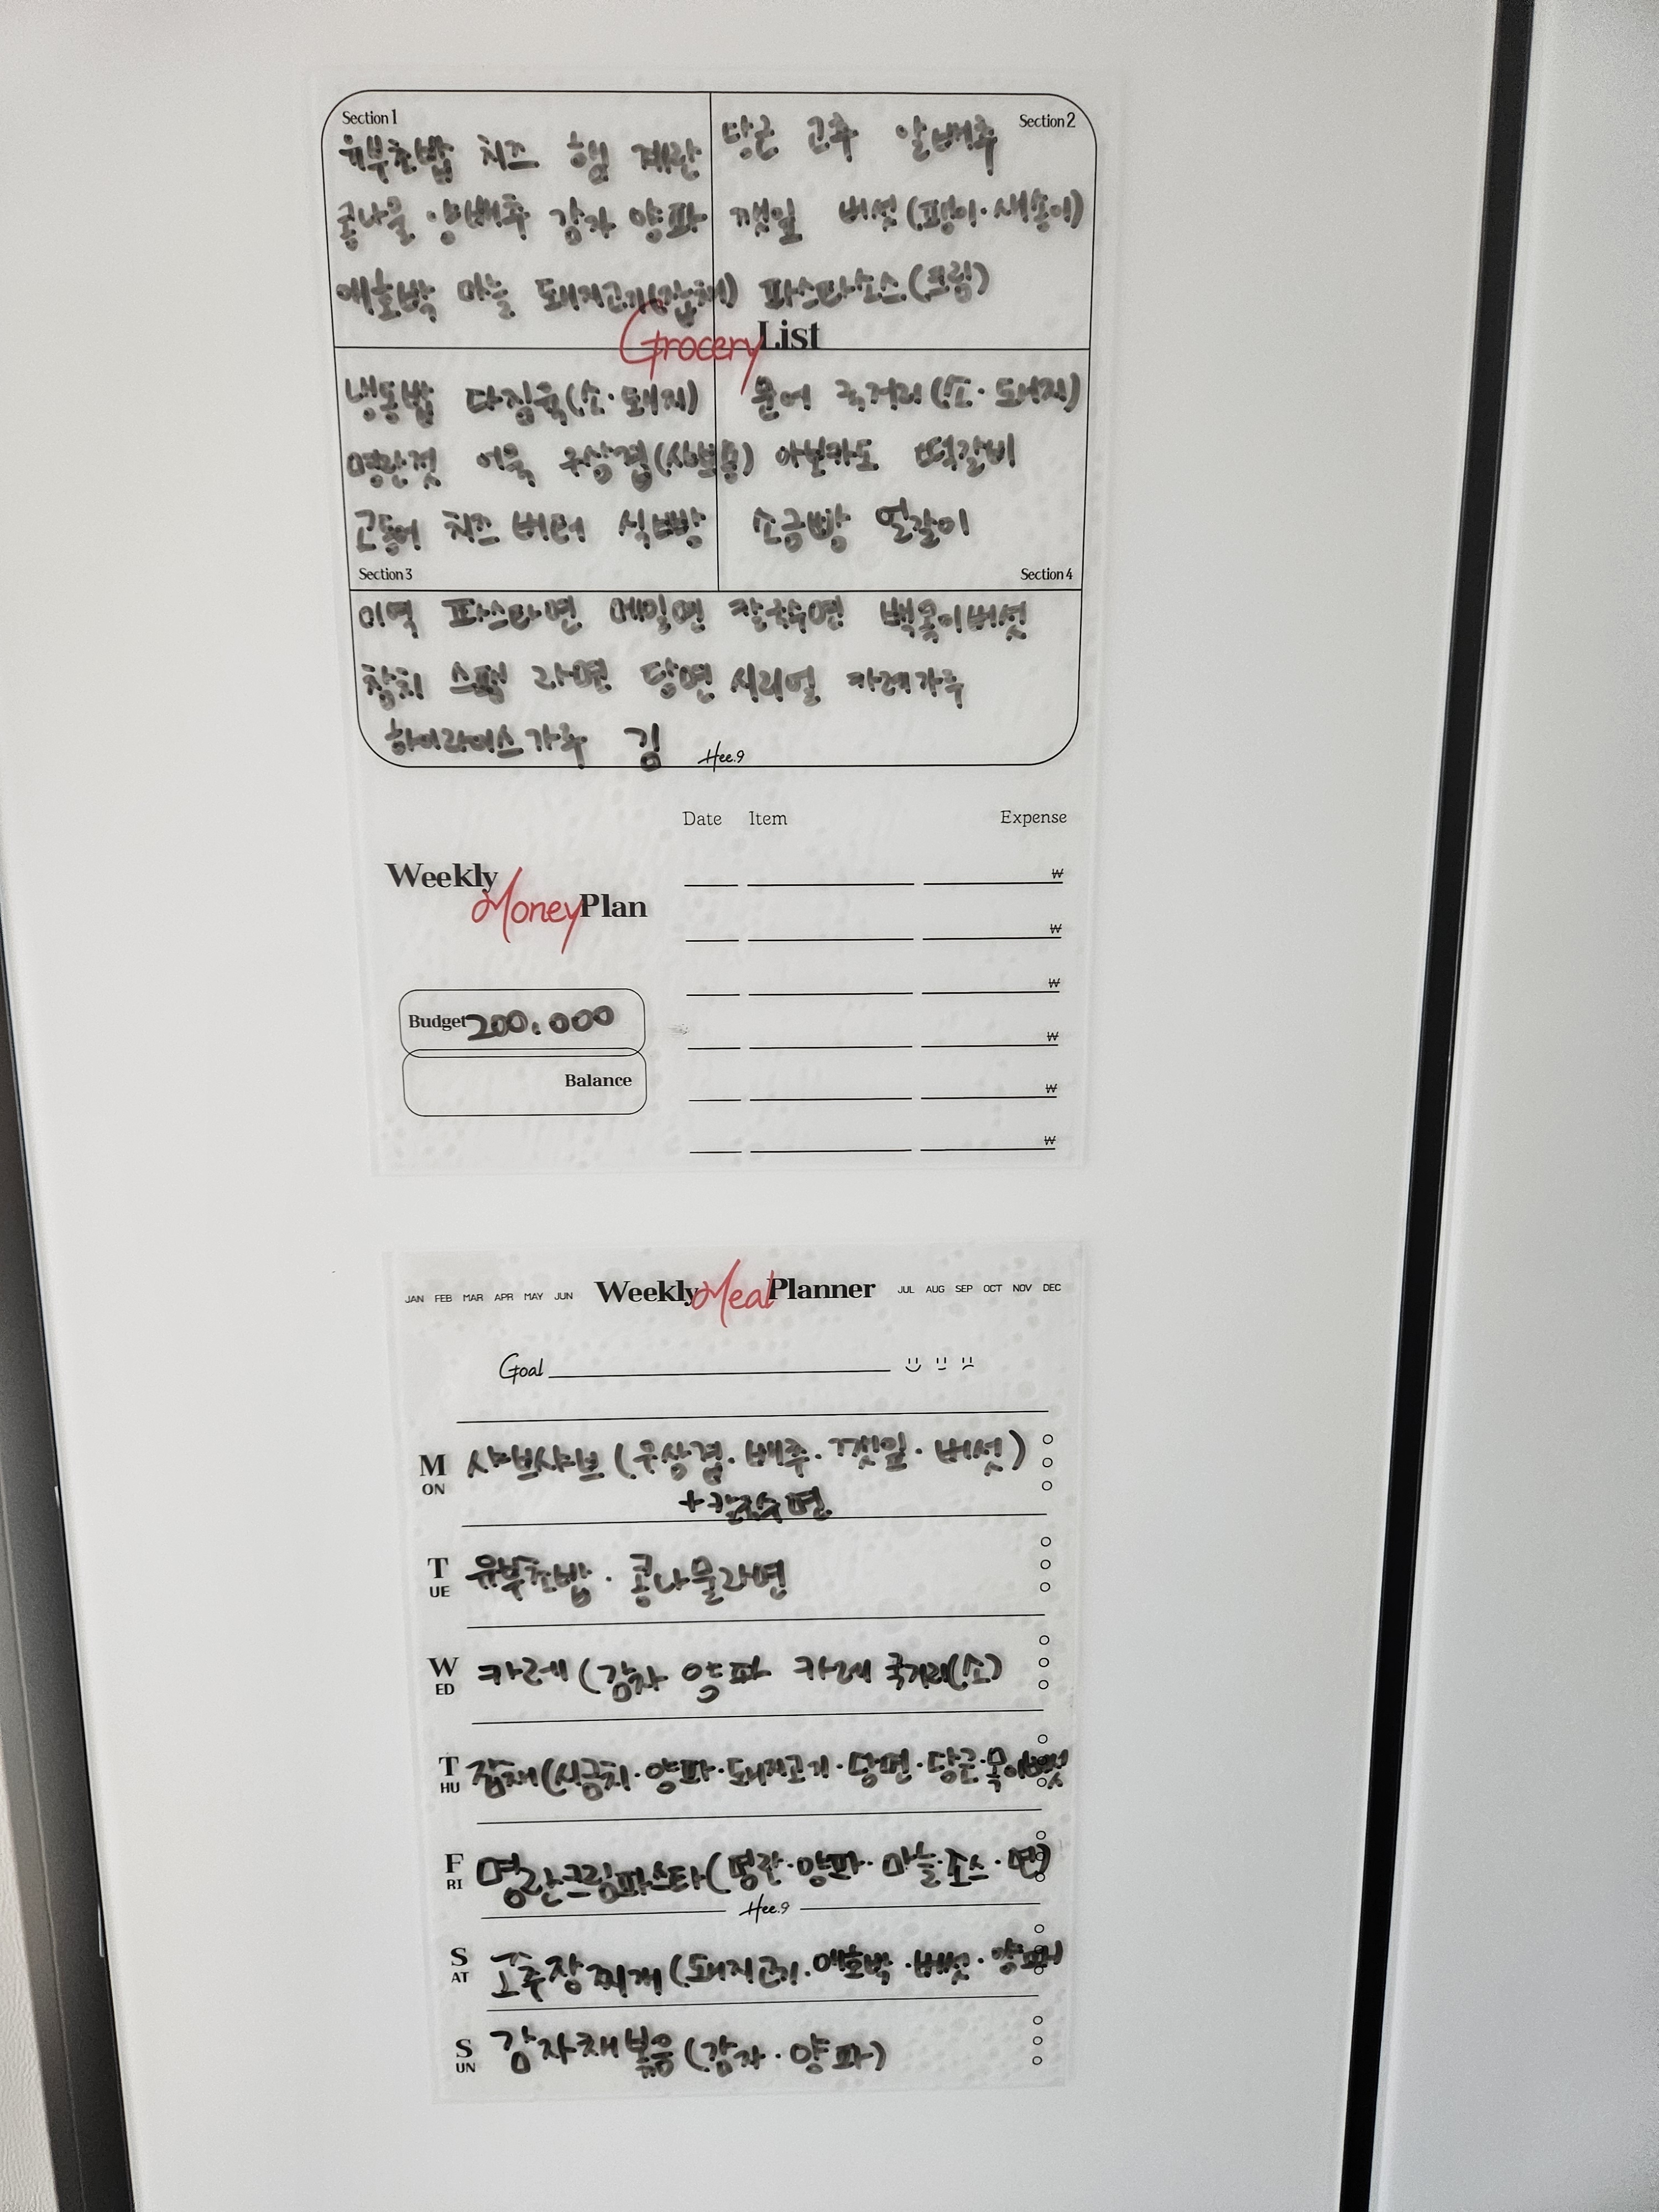 Section 1
유부초밥 치즈 햄 계란
콩나물 양배추 감자 양파
애호박 마늘 돼지고기(잡채)
Section 2
당근 고추 알배추
깻잎 버섯(팽이·새송이)
파스타소스(크림)
Grocery List
냉동밥 다짐육(소·돼지)
명란젓 어묵 우삼겹(샤브용)
고등어 치즈 버터 식빵
Section 3
문어 국거리(소·돼지)
아보카도 떡갈비
소금빵 얼갈이
Section 4
미역 파스타면 메밀면 칼국수면 백목이버섯
참치 스팸 라면 당면 시리얼 카레가루
하이라이스가루 김
Hee.9
Weekly Money Plan
Date Item Expense
₩
₩
₩
₩
₩
₩
Budget 200.000
Balance
JAN FEB MAR APR MAY JUN Weekly Meal Planner JUL AUG SEP OCT NOV DEC
Goal
MON 샤브샤브 (우삼겹·배추·깻잎·버섯)
+칼국수면
TUE 유부초밥·콩나물라면
WED 카레 (감자 양파 카레 국거리(소)
THU 잡채(시금치·양파·돼지고기·당면·당근·목이버섯
FRI 명란크림파스타(명란·양파·마늘·소스·면)
Hee.9
SAT 고추장찌개(돼지고기·애호박·버섯·양파)
SUN 감자채볶음(감자·양파)